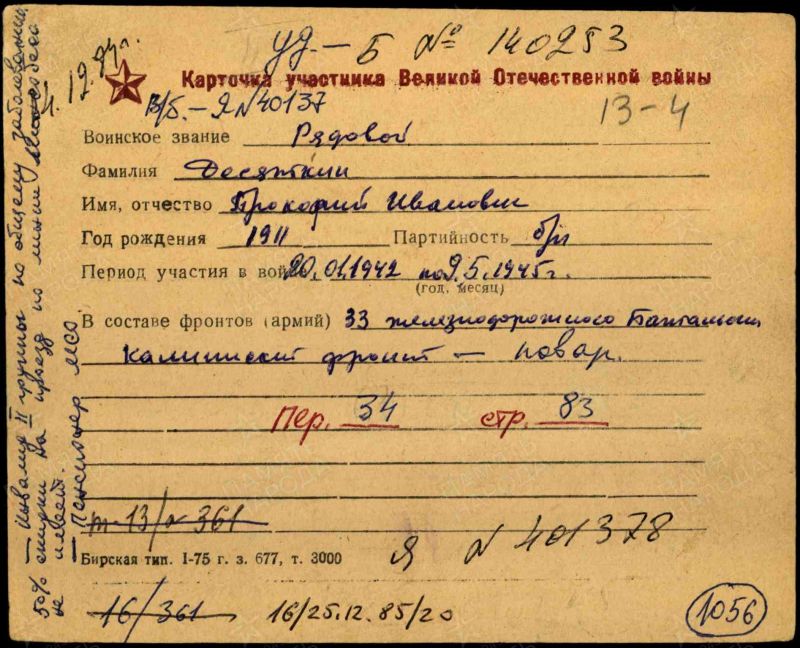 уд - Б № 140253
4.12.84г.
Карточка участника Великой Отечественной войны
В/Б.-Я №40137
13-4
Воинское звание Рядовой
Фамилия Десяткин
Имя, отчество Прокофий Иванович
Год рождения 1911 Партийность б/п
Период участия в войне 20.01.1942 по 9.5.1945г.
(год, месяц)
В составе фронтов (армий) 33 железнодорожного Батальона
Калининский фронт - повар.
Пер. 34 стр. 83
т-13/ 361
Бирская тип. I-75 г. з. 677, т. 3000
Я № 401378
16/361 16/25.12.85/20
1056
- Инвалид II группы по общему заболеванию,
50% скидки на проезд по линии
не имеет.
- Пенсионер МСО
ПАМЯТЬ НАРОДА